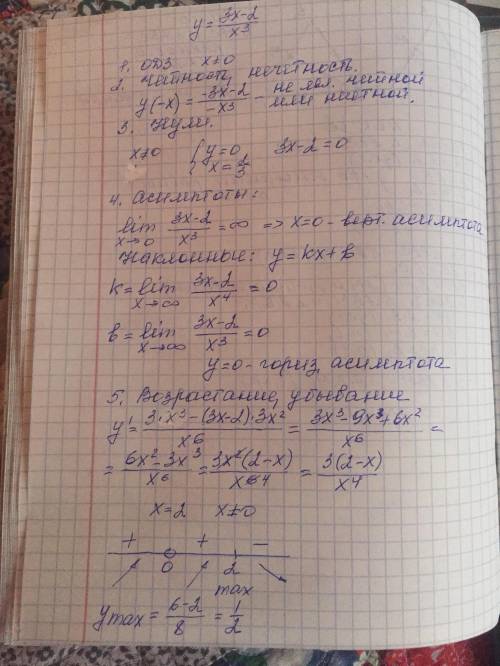 y = (3x-2)/x³
1. ОДЗ x≠0
2. Четность, нечетность.
y(-x) = (-3x-2)/(-x³) - не явл. четной или нечетной.
3. Нули.
x≠0 { y=0 x=2/3 3x-2=0
4. Асимптоты:
lim x→0 (3x-2)/x³ = ∞ => x=0 - верт. асимптота
Наклонные: y=kx+b
k = lim x→∞ (3x-2)/x⁴ = 0
b = lim x→∞ (3x-2)/x³ = 0
y=0 - гориз. асимптота
5. Возрастание, убывание
y' = (3·x³-(3x-2)·3x²)/x⁶ = (3x³-9x³+6x²)/x⁶ =
= (6x²-3x³)/x⁶ = (3x²(2-x))/x⁶ ⁴ = (3(2-x))/x⁴
x=2 x≠0
+ + -
0 2
max
ymax = (6-2)/8 = 1/2